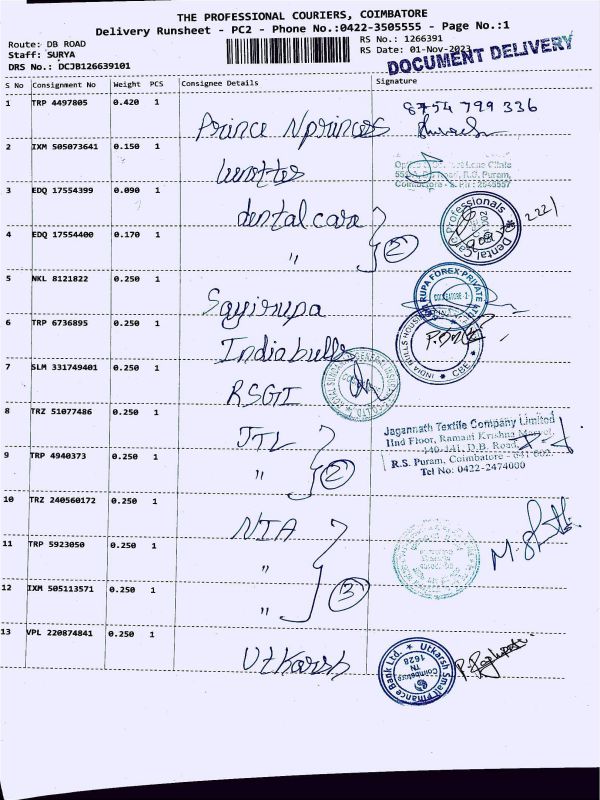 THE PROFESSIONAL COURIERS, COIMBATORE
Delivery Runsheet - PC2 - Phone No.:0422-3505555 - Page No.:1
Route: DB ROAD
RS No.: 1266391
Staff: SURYA
RS Date: 01-Nov-2023
DRS No.: DCJB126639101
DOCUMENT DELIVERY
S No Consignment No Weight PCS Consignee Details Signature
1 TRP 4497805 0.420 1
8754 799 336
Prince N princes
2 IXM 505073641 0.150 1
3 EDQ 17554399 0.090 1
dental care
4 EDQ 17554400 0.170 1
" 2
Dental Care Professionals
5 NKL 8121822 0.250 1
Sayirupa
RUPA FOREX PRIVATE
6 TRP 6736895 0.250 1
Indiabulls
INDIA BULLS HOUSING
CBE
7 SLM 331749401 0.250 1
RSGI
8 TRZ 51077486 0.250 1
JTL
Jagannath Textile Company Limited
IInd Floor, Ramani Krishna
140-141, D.B. Road,
R.S. Puram, Coimbatore - 641 002
Tel No: 0422-2474000
9 TRP 4940373 0.250 1
" 2
10 TRZ 240560172 0.250 1
NIA
11 TRP 5923050 0.250 1
"
12 IXM 505113571 0.250 1
" 3
13 VPL 220874841 0.250 1
Utkarsh
Utkarsh Small Finance Bank Ltd.
Coimbatore
TN
1628